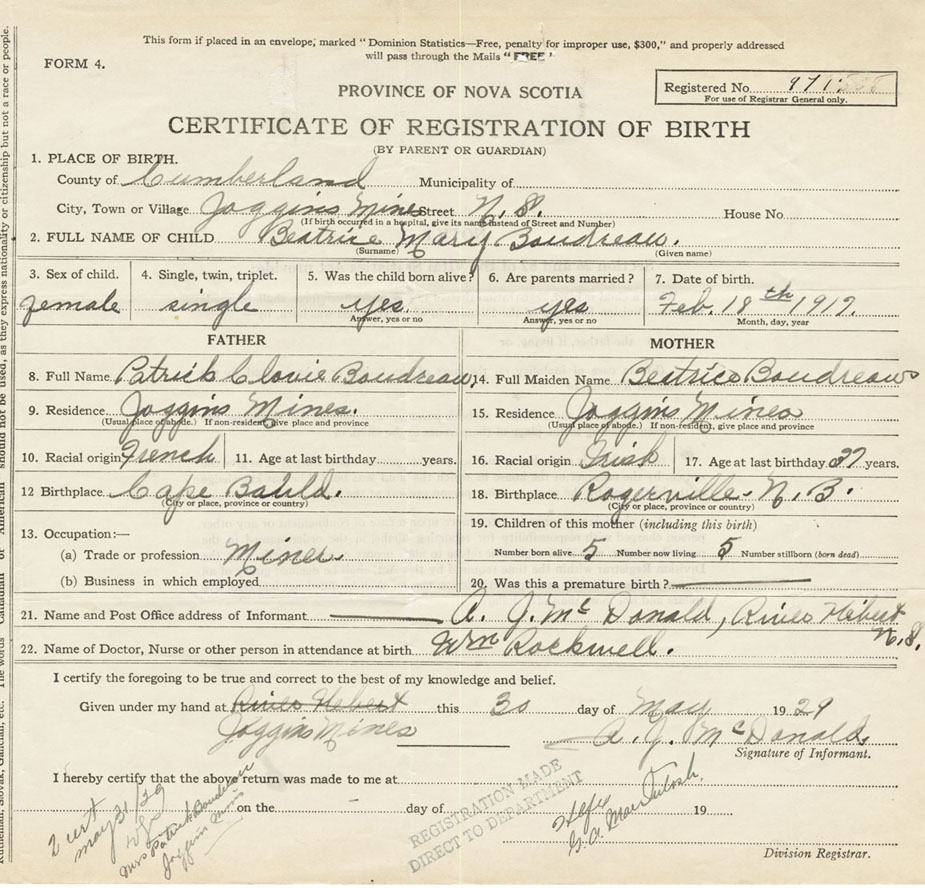 This form if placed in an envelope, marked "Dominion Statistics—Free, penalty for improper use, $300," and properly addressed
will pass through the Mails "FREE"
FORM 4.
PROVINCE OF NOVA SCOTIA
Registered No. 971
For use of Registrar General only.
CERTIFICATE OF REGISTRATION OF BIRTH
(BY PARENT OR GUARDIAN)
1. PLACE OF BIRTH.
County of Cumberland Municipality of
City, Town or Village Joggins Mines Street N.S. House No.
(If birth occurred in a hospital, give its name instead of Street and Number)
2. FULL NAME OF CHILD Beatrice Mary Boudreau.
(Surname) (Given name)
3. Sex of child. 4. Single, twin, triplet. 5. Was the child born alive? 6. Are parents married? 7. Date of birth.
female single yes. yes Feb. 18th 1917.
Answer, yes or no Answer, yes or no Month, day, year
FATHER MOTHER
8. Full Name Patrick Clovie Boudreau 14. Full Maiden Name Beatrice Boudreau
9. Residence Joggins Mines. 15. Residence Joggins Mines
(Usual place of abode.) If non-resident, give place and province (Usual place of abode.) If non-resident, give place and province
10. Racial origin French 11. Age at last birthday years. 16. Racial origin Irish 17. Age at last birthday 37 years.
12 Birthplace Cape Bauld. 18. Birthplace Rogerville - N.B.
(City or place, province or country) (City or place, province or country)
13. Occupation:— 19. Children of this mother (including this birth)
(a) Trade or profession Miner Number born alive 5 Number now living 5 Number stillborn (born dead)
(b) Business in which employed 20. Was this a premature birth?
21. Name and Post Office address of Informant A. J. McDonald, River Hebert N.S.
22. Name of Doctor, Nurse or other person in attendance at birth Wm Rockwell.
I certify the foregoing to be true and correct to the best of my knowledge and belief.
Given under my hand at River Hebert this 30 day of May 1929
Joggins Mines A. J. McDonald
Signature of Informant.
I hereby certify that the above return was made to me at
on the day of 19
REGISTRATION MADE
DIRECT TO DEPARTMENT
2 cert
May 31/29
Mrs Patrick Boudreau
Joggins Mines
Division Registrar.